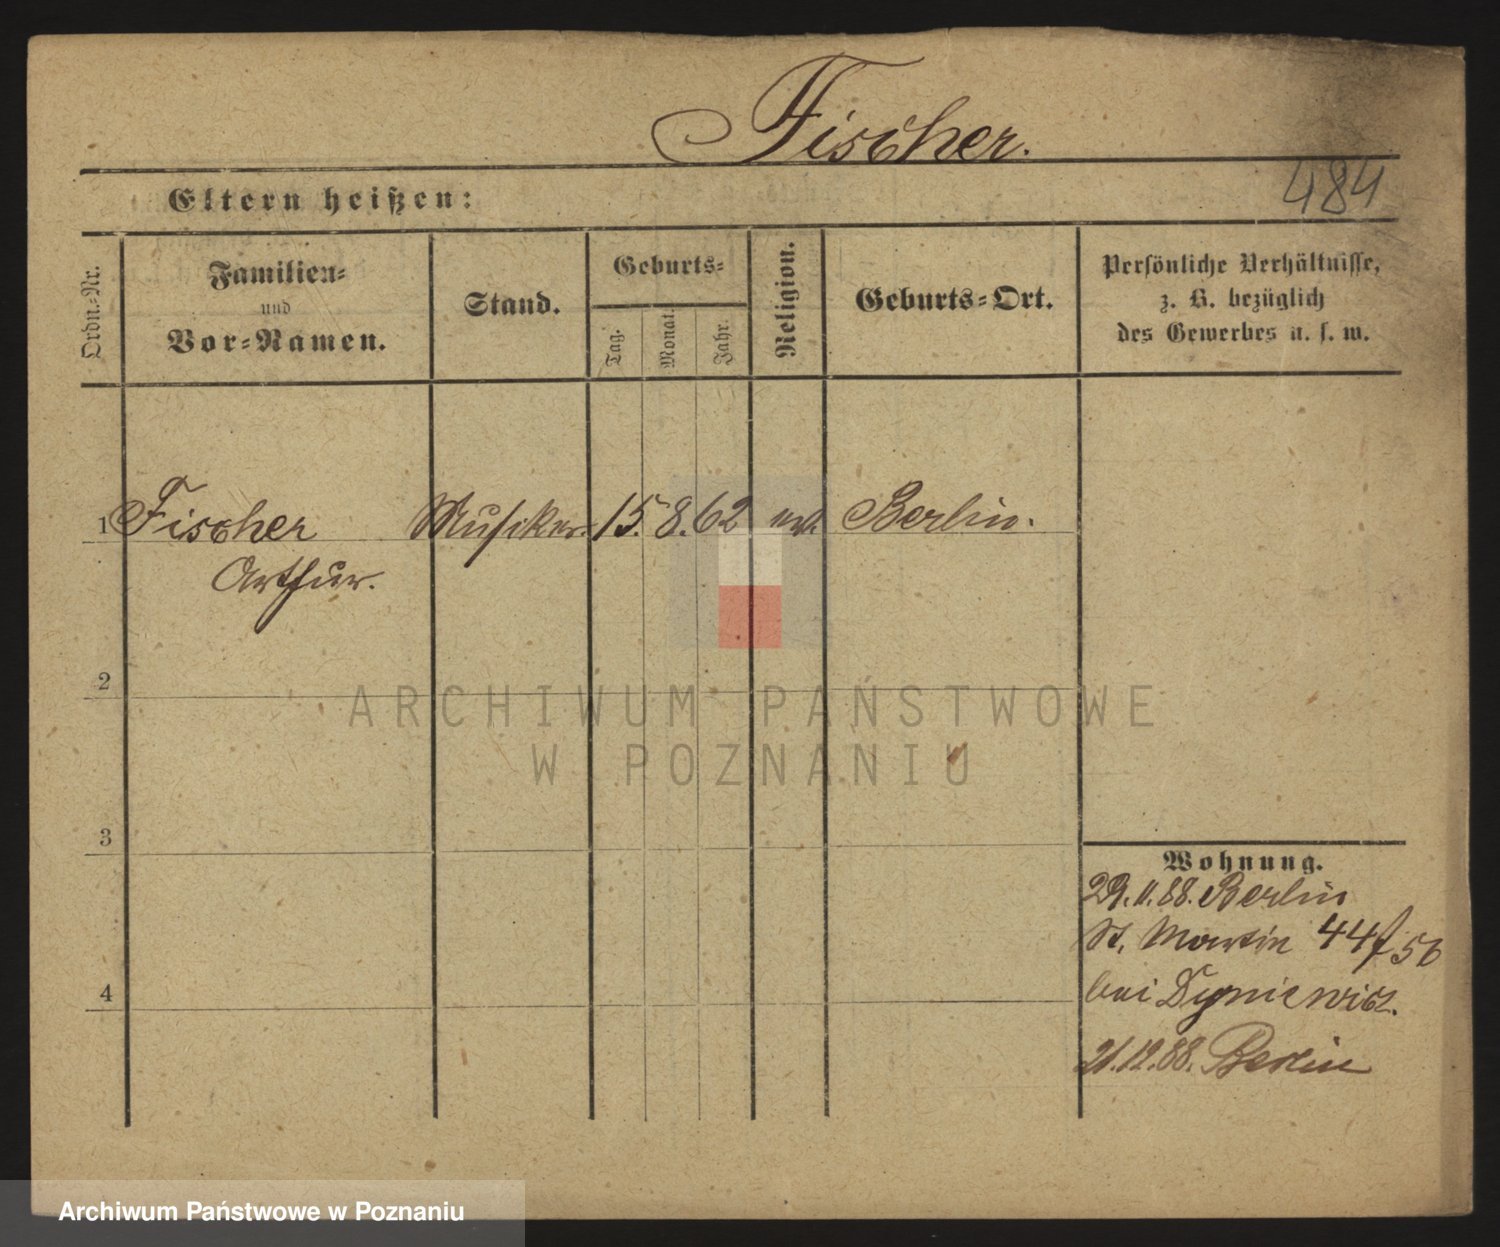 Fischer.
484
Eltern heißen:
Ordn.-Nr.
Familien-
und
Vor-Namen.
Stand.
Geburts-
Tag.
Monat.
Jahr.
Religion.
Geburts-Ort.
Persönliche Verhältnisse,
z. B. bezüglich
des Gewerbes u. s. w.
1 Fischer Musiker. 15. 8. 62 ev. Berlin.
Arthur.
2
ARCHIWUM PAŃSTWOWE
W POZNANIU
3
Wohnung.
29.11.88. Berlin
St. Martin 44/56
bei Dyniewicz.
4
21.12.88. Berlin
Archiwum Państwowe w Poznaniu